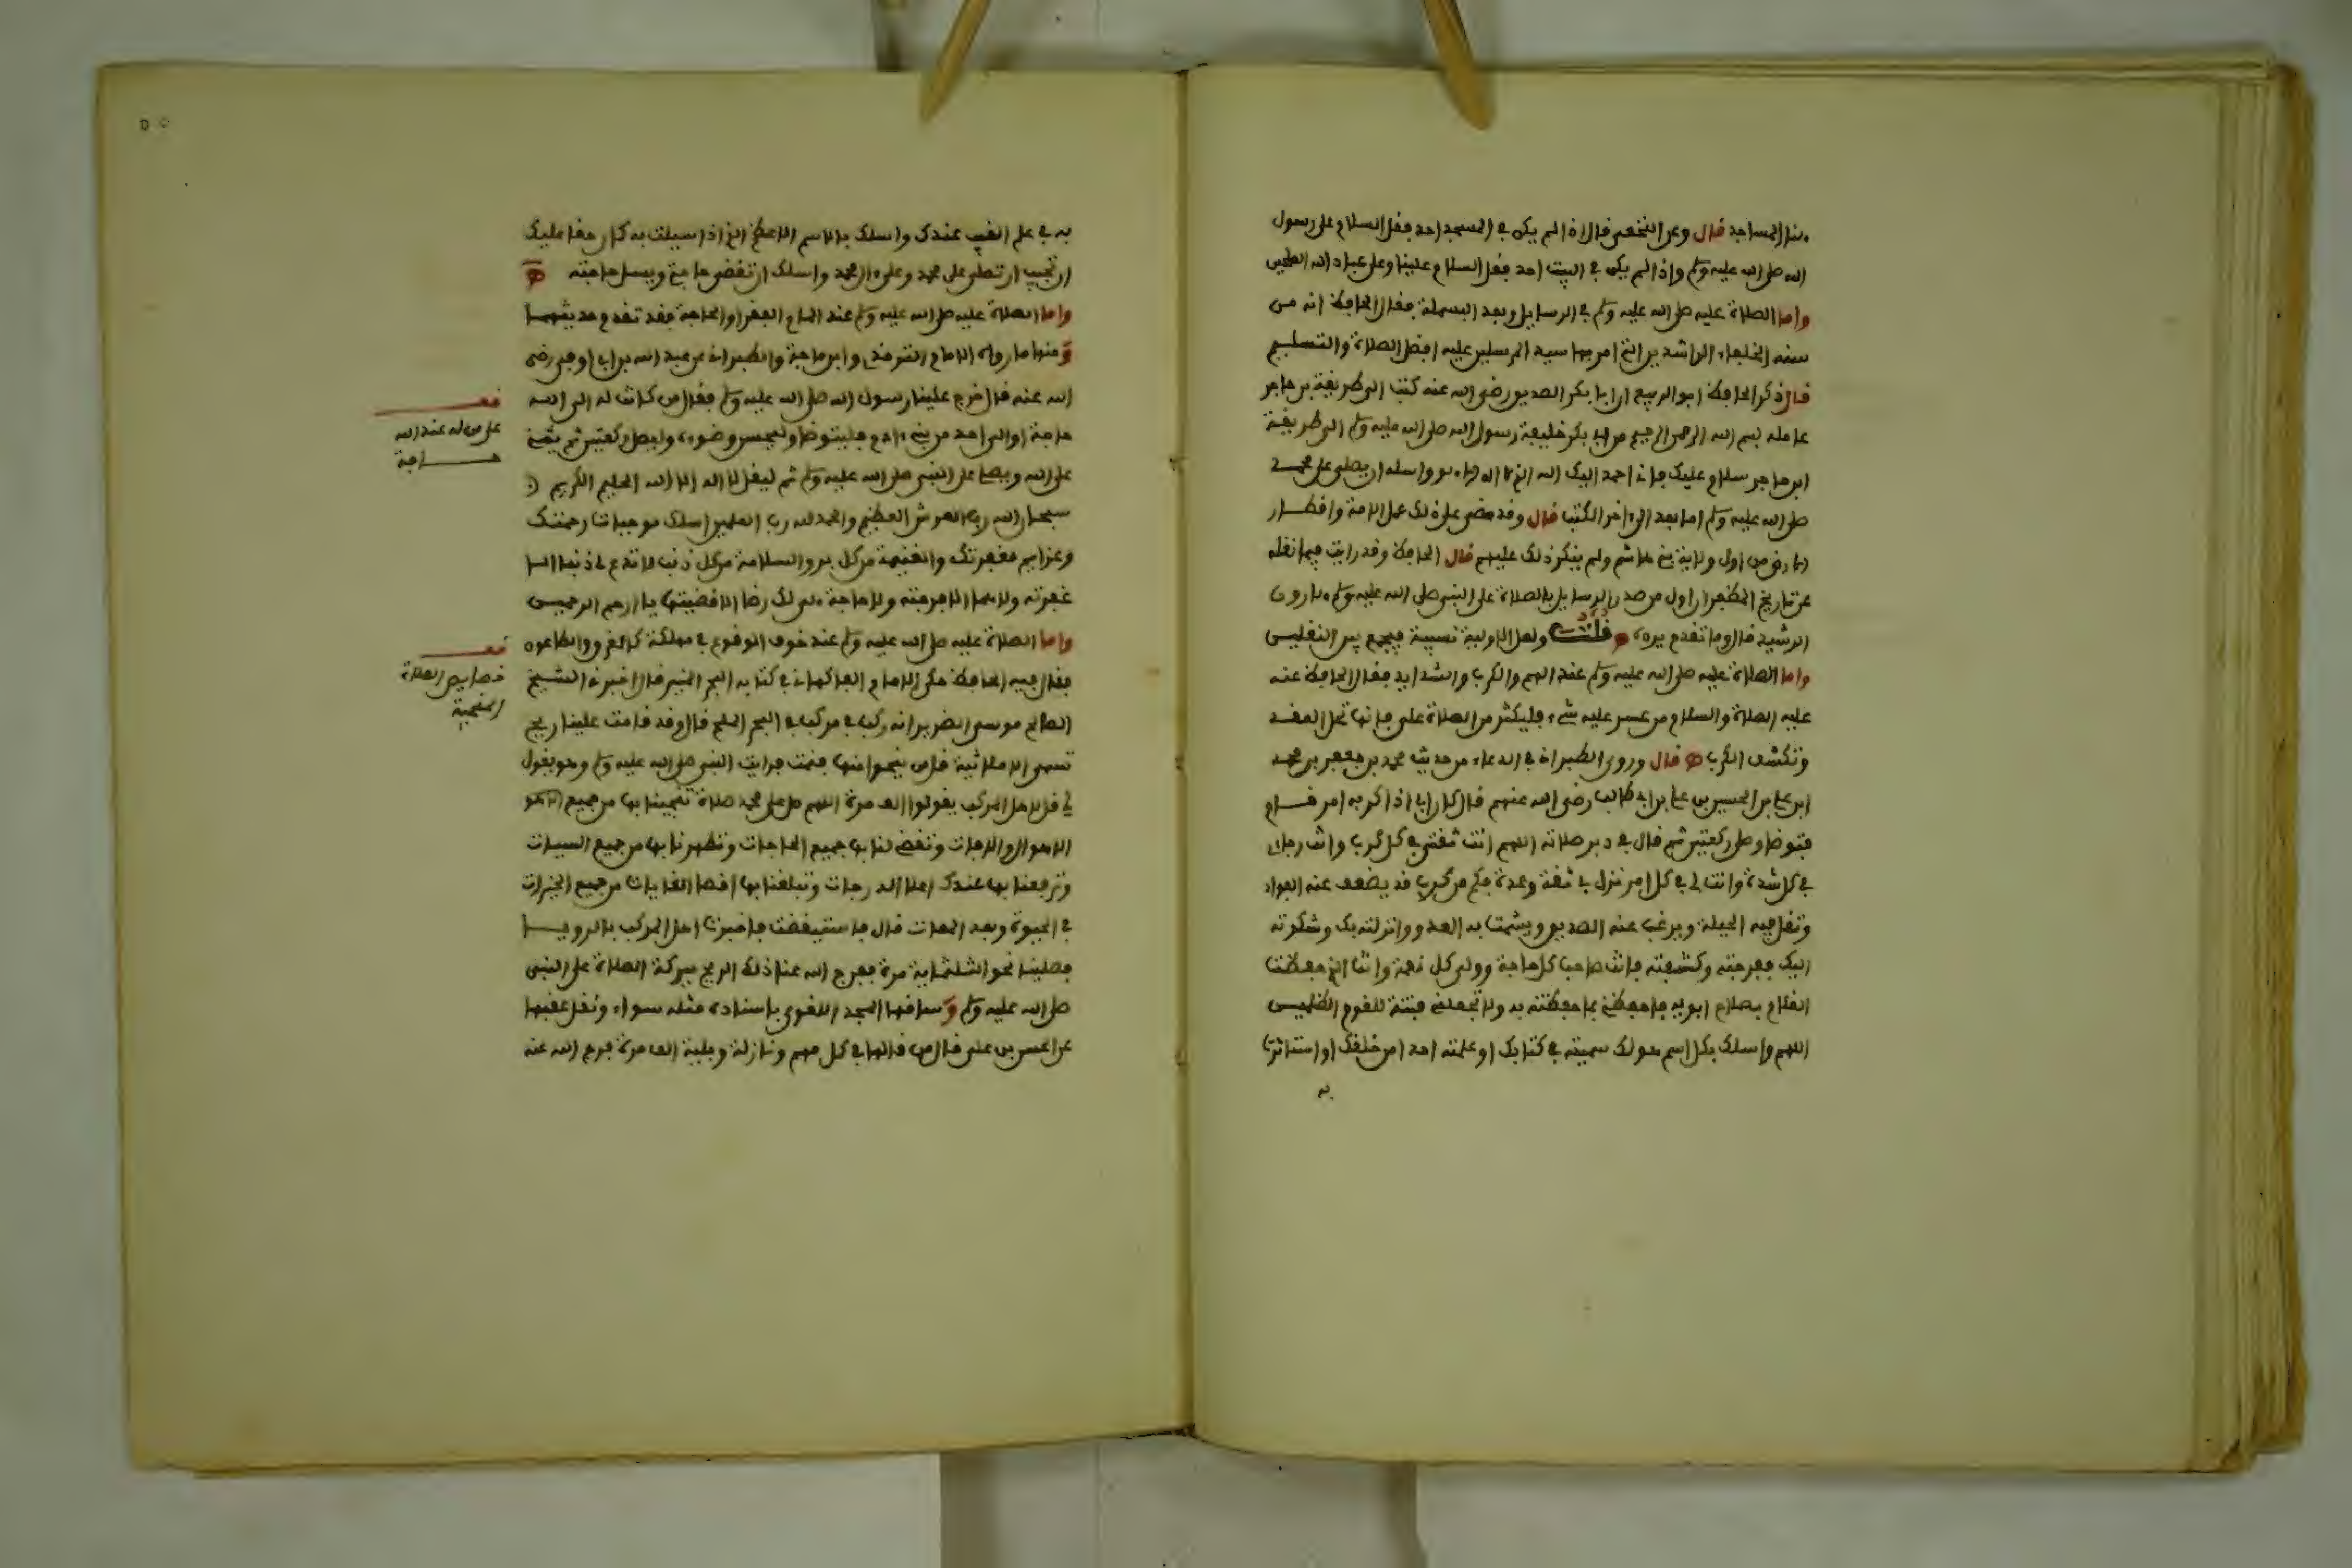 بنا المساجد قال وعن النخعي قال اذا لم يكن في المسجد احد فقل السلام على رسول
الله صلى الله عليه وسلم واذا لم يكن في البيت احد فقل السلام علينا وعلى عباد الله الصلحين
واما الصلاة عليه صلى الله عليه وسلم في الرسايل وبعد البسملة فقال الحافظ انه من
سنة الخلفاء الراشدين التي امر بها سيد المرسلين عليه افضل الصلاة والتسليم
قال ذكر الحافظ ابو الربيع ان ابا بكر الصديق رضي الله عنه كتب الى طريفة بن حاجر
عامله بسم الله الرحمن الرحيم من ابي بكر خليفة رسول الله صلى الله عليه وسلم الى طريفة
ابن حاجر سلام عليك فاني احمد اليك الله الذي لا اله الا هو واسله ان يصلي على محمد
صلى الله عليه وسلم اما بعد الى اخر الكتب قال وقد مضى على ذلك عمل الامة واقطار
الارض من اول ولاية بني هاشم ولم ينكر ذلك عليهم قال الحافظ وقد رايت فيما نقله
عن تاريخ المظفر ان اول من صدر الرسايل بالصلاة على النبي صلى الله عليه وسلم هارون
الرشيد قال وما تقدم يرده قلت ولعل الاولية نسبية فيجمع بين النقلين
واما الصلاة عليه صلى الله عليه وسلم عند الهم والكرب والشدايد فقال الحافظ عنه
عليه الصلاة والسلام من عسر عليه شيء فليكثر من الصلاة علي فانها تحل العقد
وتكشف الكرب قال وروى الطبراني في الدعاء من حديث محمد بن جعفر بن محمد
ابن علي بن الحسين بن علي بن ابي طالب رضي الله عنهم قال كان ابي اذا كربه امر قام
فتوضا وصلى ركعتين ثم قال في دبر صلاته اللهم انت ثقتي في كل كرب وانت رجاي
في كل شدة وانت لي في كل امر نزل بي ثقة وعدة فكم من كرب قد يضعف عنه الفواد
وتقل فيه الحيلة ويرغب عنه الصديق ويشمت به العدو وانزلته بك وشكوته
اليك ففرجته وكشفته فانت صاحب كل حاجة وولي كل نعمة وانت الذي حفظت
الغلام بصلاح ابويه فاحفظني بما حفظته به ولا تجعلني فتنة للقوم الظلمين
اللهم واسلك بكل اسم هو لك سميته في كتابك او علمته احدا من خلقك او استاثرت
به
به في علم الغيب عندك واسلك بالاسم الاعظم الذي اذا سيلت به كان حقا عليك
ان تجيب ان تصلي على محمد وعلى ال محمد واسلك ان تقضي حاجتي ويسل حاجته
واما الصلاة عليه صلى الله عليه وسلم عند المام الفقر او الحاجة فقد تقدم حديثهما
ومنها ما رواه الامام الترمذي وابن ماجة والطبراني عن عبد الله بن ابي اوفى رضي
الله عنه قال خرج علينا رسول الله صلى الله عليه وسلم فقال من كانت له الى الله
حاجة او الى احد من بني ادم فليتوضا وليحسن وضوءه وليصل ركعتين ثم يثني
على الله ويصلي على النبي صلى الله عليه وسلم ثم ليقل لا اله الا الله الحليم الكريم
سبحان الله رب العرش العظيم والحمد لله رب العلمين اسلك موجبات رحمتك
وعزايم مغفرتك والغنيمة من كل بر والسلامة من كل ذنب لا تدع لي ذنبا الا
غفرته ولا هما الا فرجته ولا حاجة هي لك رضا الا قضيتها يا ارحم الرحمين
واما الصلاة عليه صلى الله عليه وسلم عند خوف الوقوع في مهلكة كالغرق والطاعون
فقال فيه الحافظ حكى الامام الفاكهاني في كتابه الفجر المنير قال اخبرني الشيخ
الصالح موسى الضرير انه ركب في مركب في البحر الملح قال وقد قامت علينا ريح
تسمى الاقلابية قل من ينجوا منها فنمت فرايت النبي صلى الله عليه وسلم وهو يقول
لي قل لاهل المركب يقولوا الف مرة اللهم صل على محمد صلاة تنجينا بها من جميع
الاهوال والافات وتقضي لنا بها جميع الحاجات وتطهرنا بها من جميع السيات
وترفعنا بها عندك اعلا الدرجات وتبلغنا بها اقصا الغايات من جميع الخيرات
في الحيوة وبعد الممات قال فاستيقظت فاخبرت اهل المركب بالرويا
فصلينا نحو الثلثماية مرة ففرج الله عنا ذلك الريح ببركة الصلاة على النبي
صلى الله عليه وسلم وساقها المجد اللغوي باسناده مثله سواء ونقل عقبها
عن الحسن بن علي قال من قالها في كل مهم ونازلة وبلية الف مرة فرج الله عنه
قف
على من له عند الله
حاجة
قف
خصايص الصلاة
المنجية